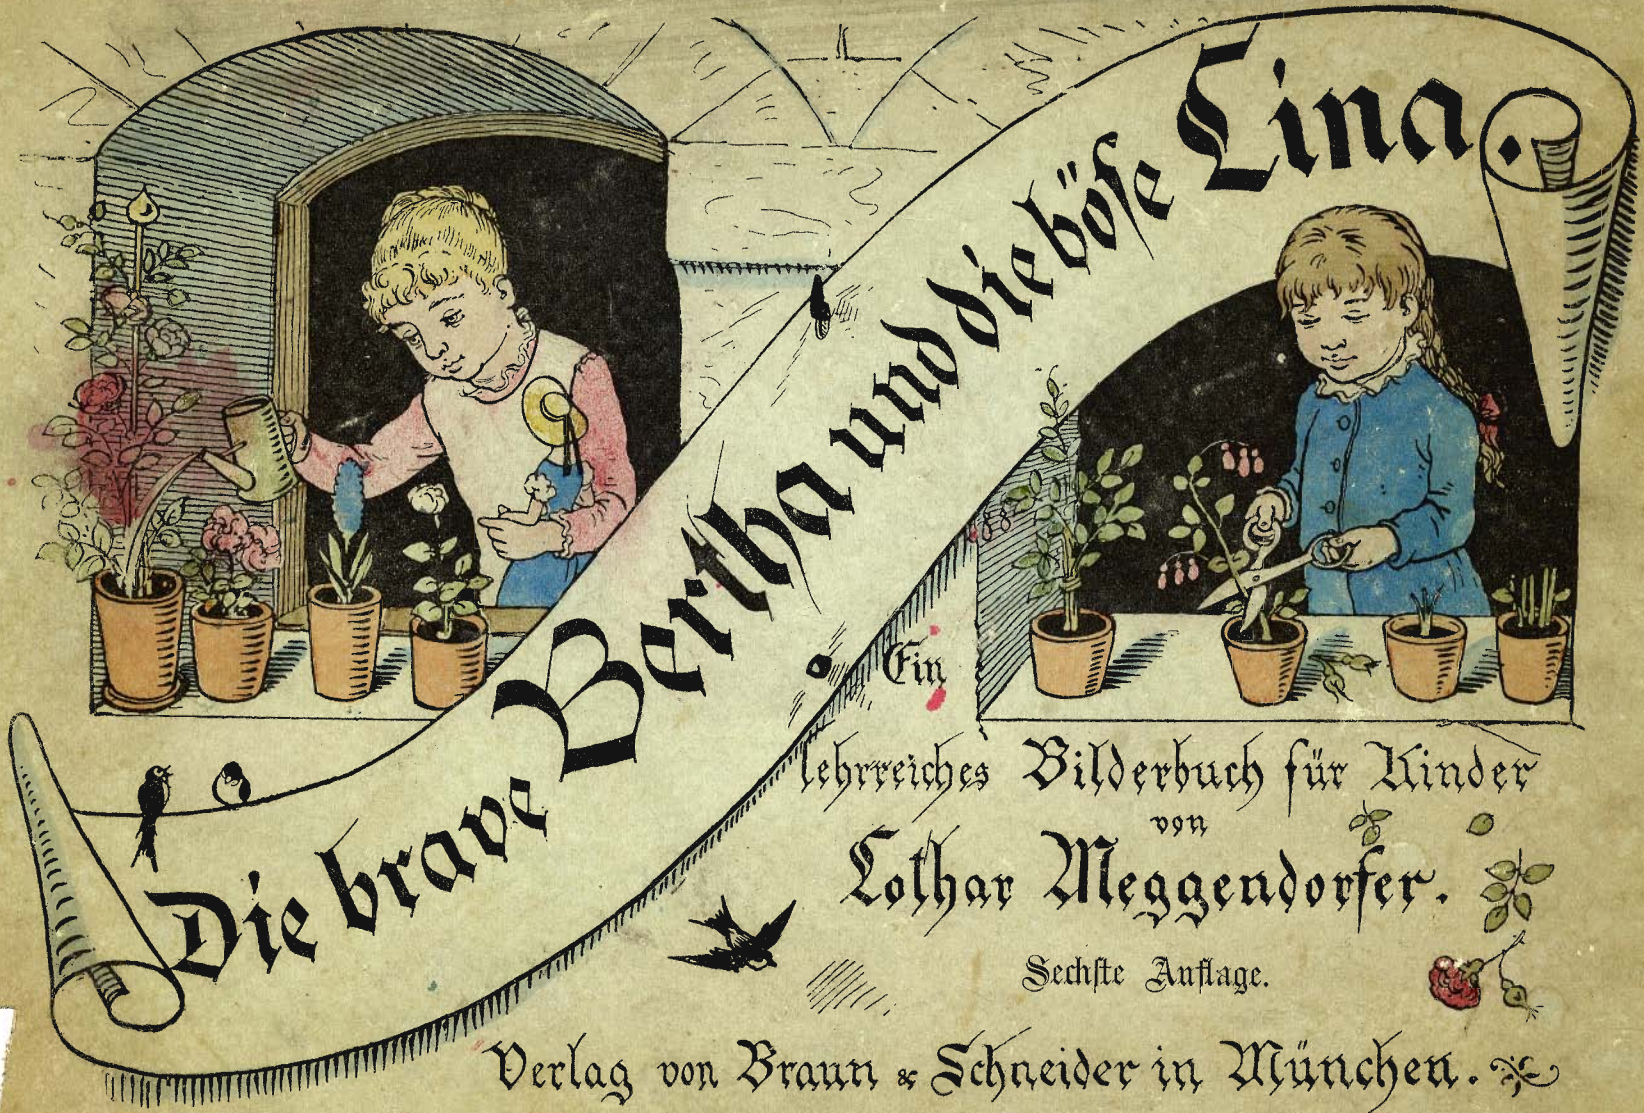 Die brave Bertha und die böse Lina
Ein
lehrreiches Bilderbuch für Kinder
von
Lothar Meggendorfer.
Sechste Auflage.
Verlag von Braun & Schneider in München.